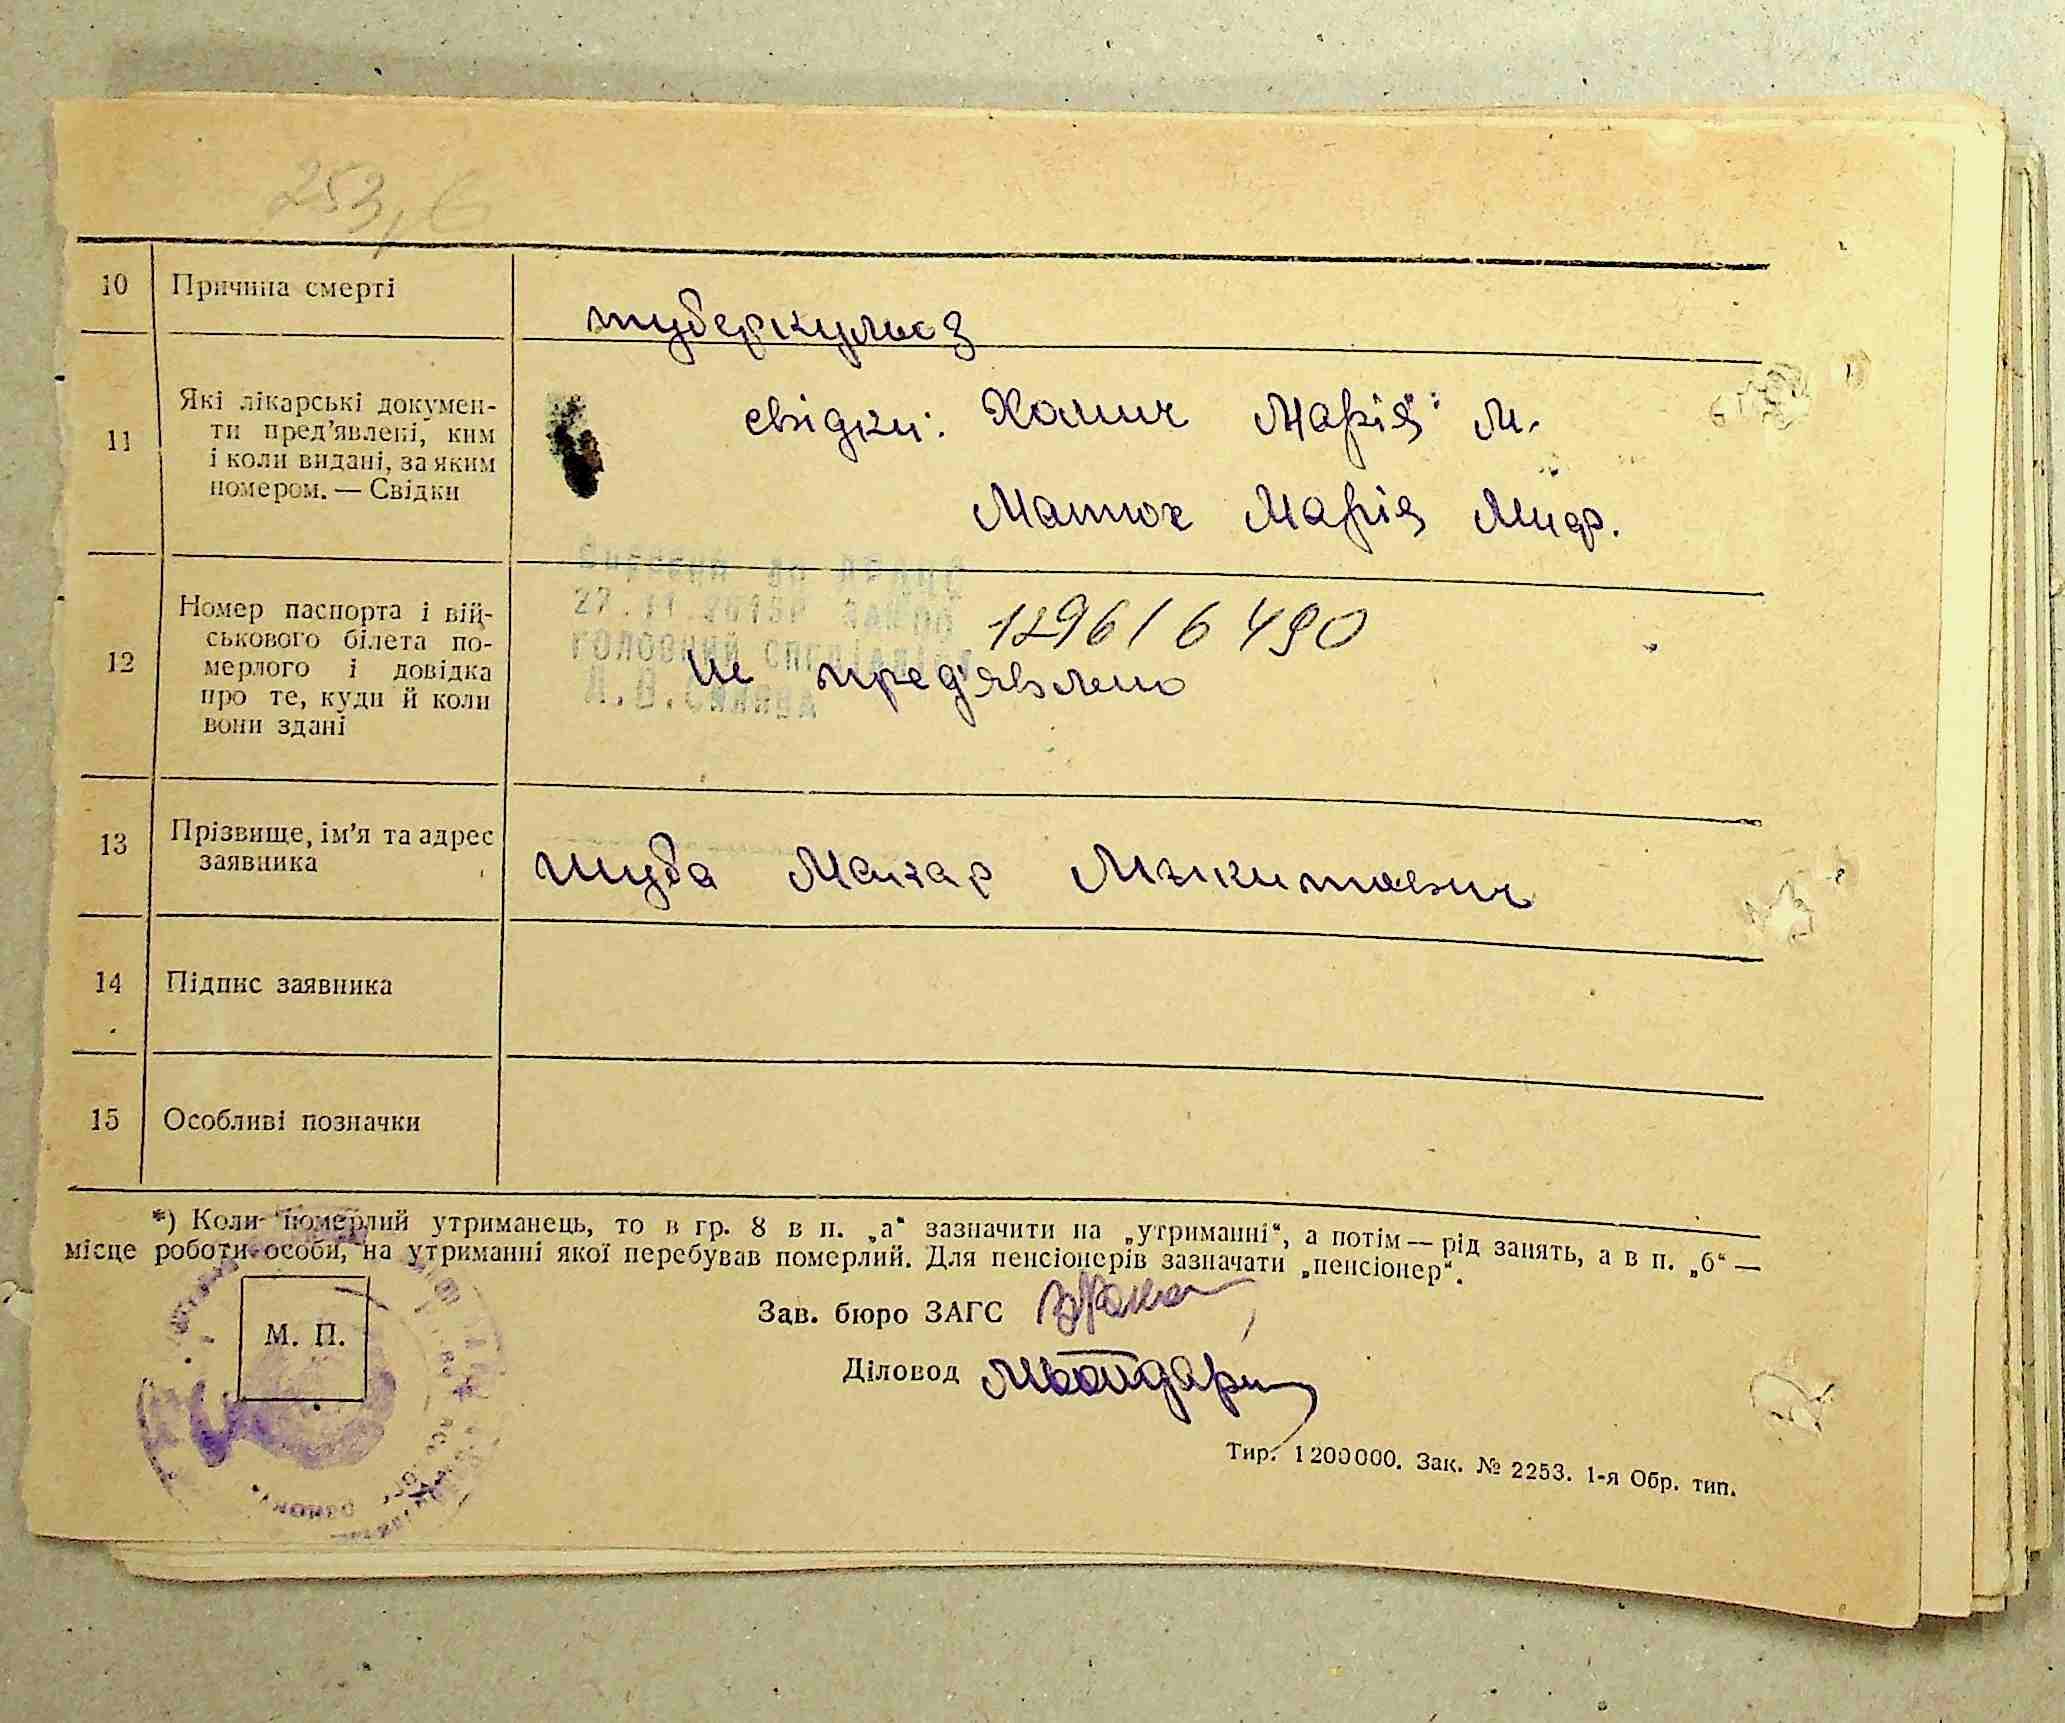 253, 6
10 Причина смерті
туберкульоз
11 Які лікарські докумен-
ти пред’явлені, ким
і коли видані, за яким
номером. — Свідки
свідки: Хомич Марія М.
Матюх Марія Миф.
27.11.2015р
головний спеціаліст
12 Номер паспорта і вій-
ськового білета по-
мерлого і довідка
про те, куди й коли
вони здані
12961 6490
не пред'явлено
13 Прізвище, ім’я та адрес
заявника
Шуба Макар Микитович
14 Підпис заявника
15 Особливі позначки
*) Коли померлий утриманець, то в гр. 8 в п. „а“ зазначити на „утриманні“, а потім — рід занять, а в п. „б“ —
місце роботи особи, на утриманні якої перебував померлий. Для пенсіонерів зазначати „пенсіонер“.
М. П.
Зав. бюро ЗАГС
Діловод
Тир. 1200000. Зак. № 2253. 1-я Обр. тип.